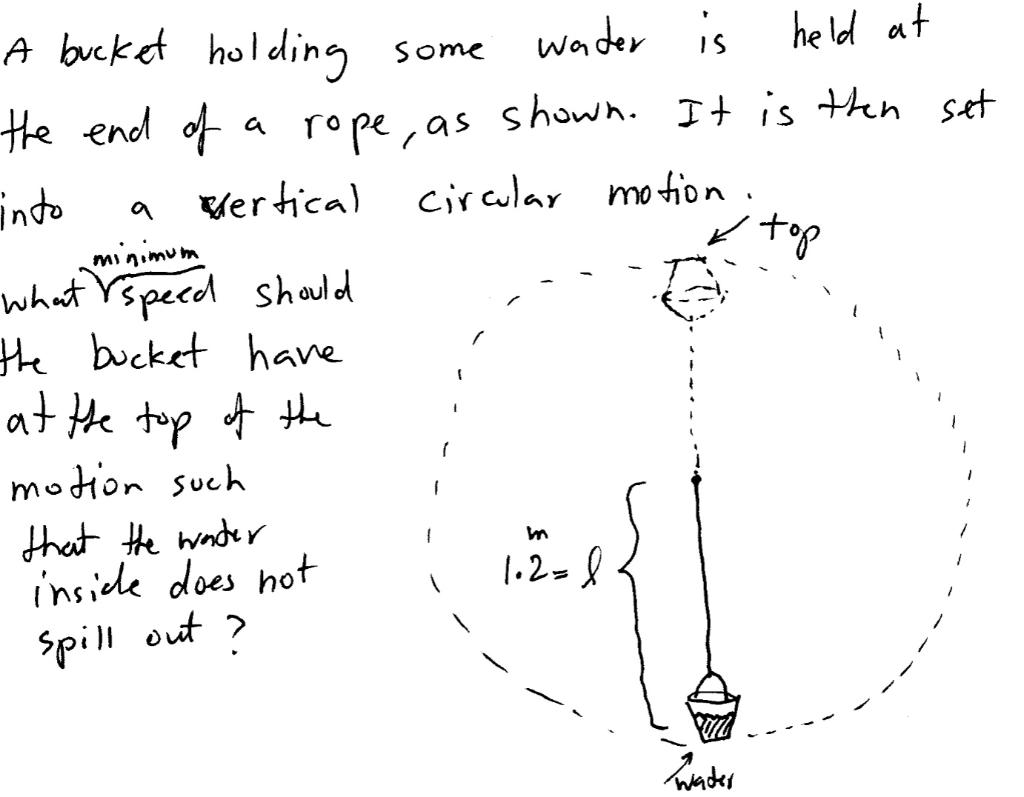 A bucket holding some wader is held at
the end of a rope, as shown. It is then set
into a vertical circular motion.
top
minimum
what speed should
the bucket have
at the top of the
motion such
that the wader
inside does not
spill out?
m
1.2 = l
wader